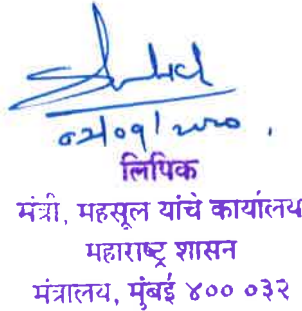 लिपिक
मंत्री, महसूल यांचे कार्यालय
महाराष्ट्र शासन
मंत्रालय, मुंबई ४०० ०३२